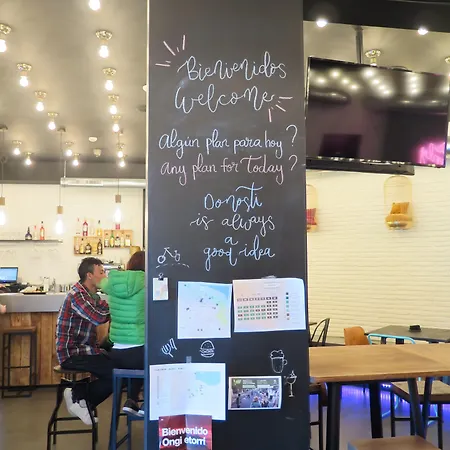 Bienvenidos
Welcome
Algún plan para hoy?
Any plan for Today?
Donosti
is always
a
good idea
Bienvenido
Ongi etorri